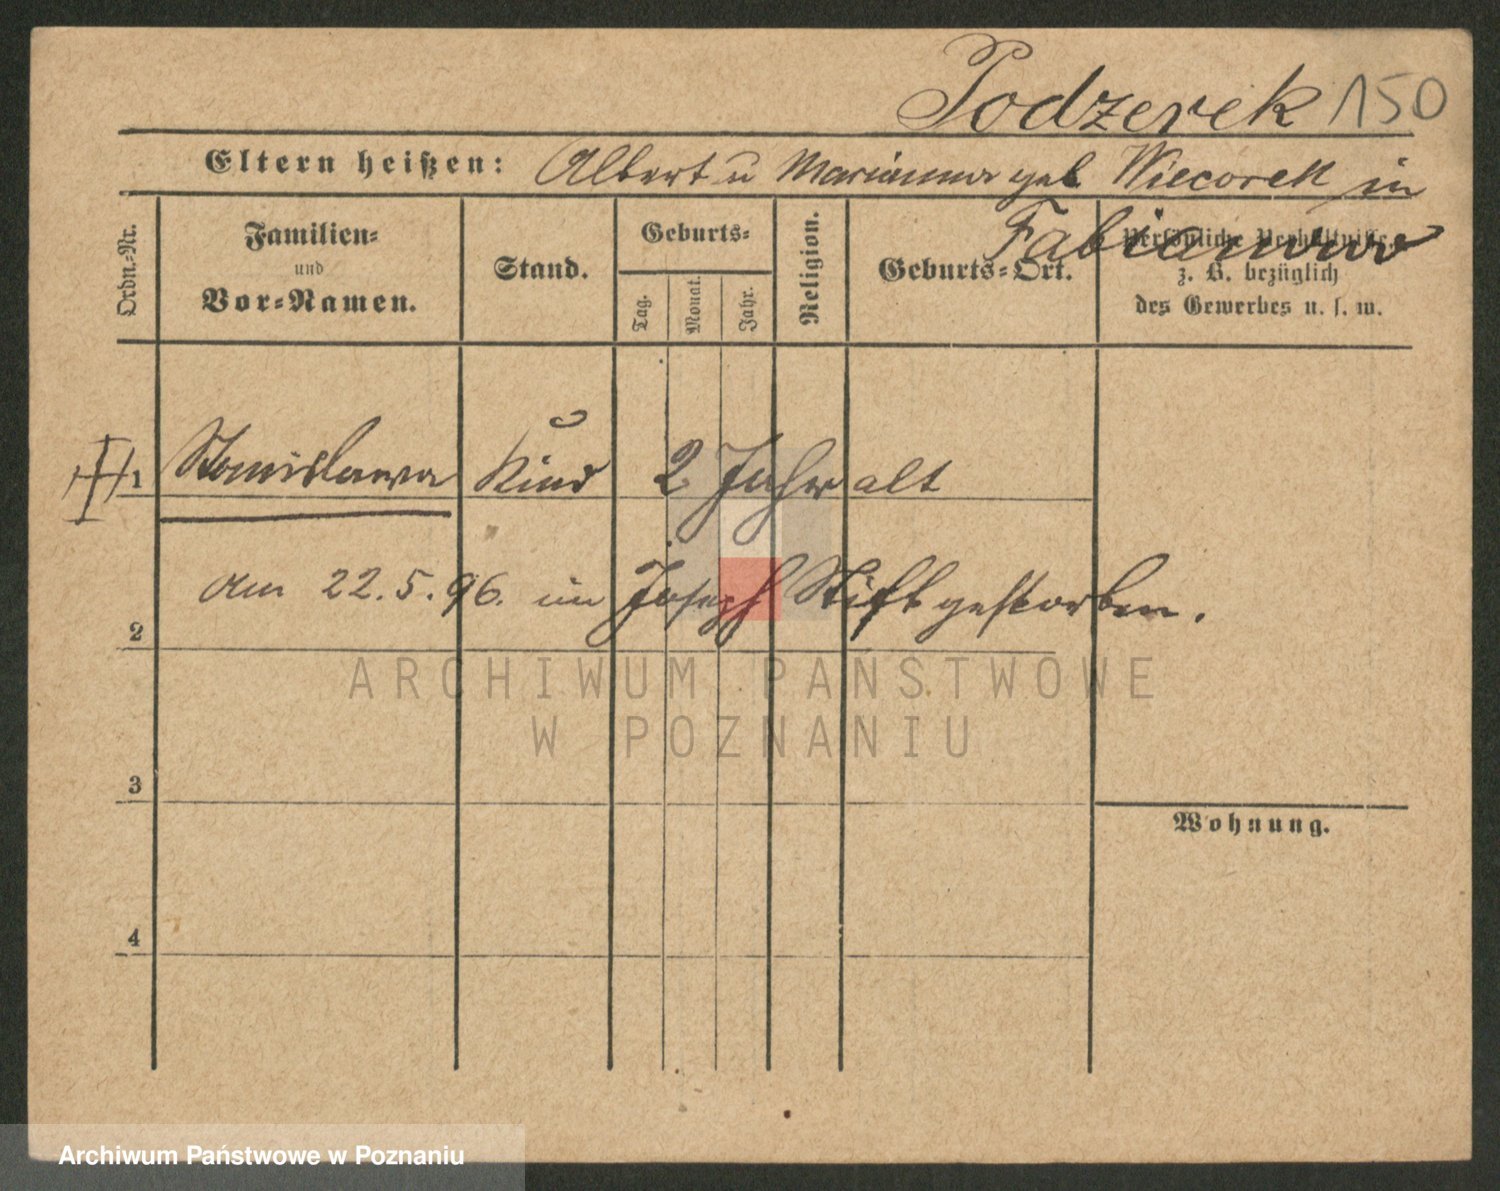 Podzerek 150
Eltern heißen: Albert u Marianna geb Wiecorek in
Fabianowo
Ordn.-Nr.
Familien-
und
Vor-Namen.
Stand.
Geburts-
Tag.
Monat.
Jahr.
Religion.
Geburts-Ort.
Persönliche Verhältnisse
z. B. bezüglich
des Gewerbes u. s. w.
1 Stanislawa Kind 2 Jahre alt
am 22.5.96. im Joseph Stift gestorben.
2
ARCHIWUM PAŃSTWOWE
W POZNANIU
3
Wohnung.
4
Archiwum Państwowe w Poznaniu